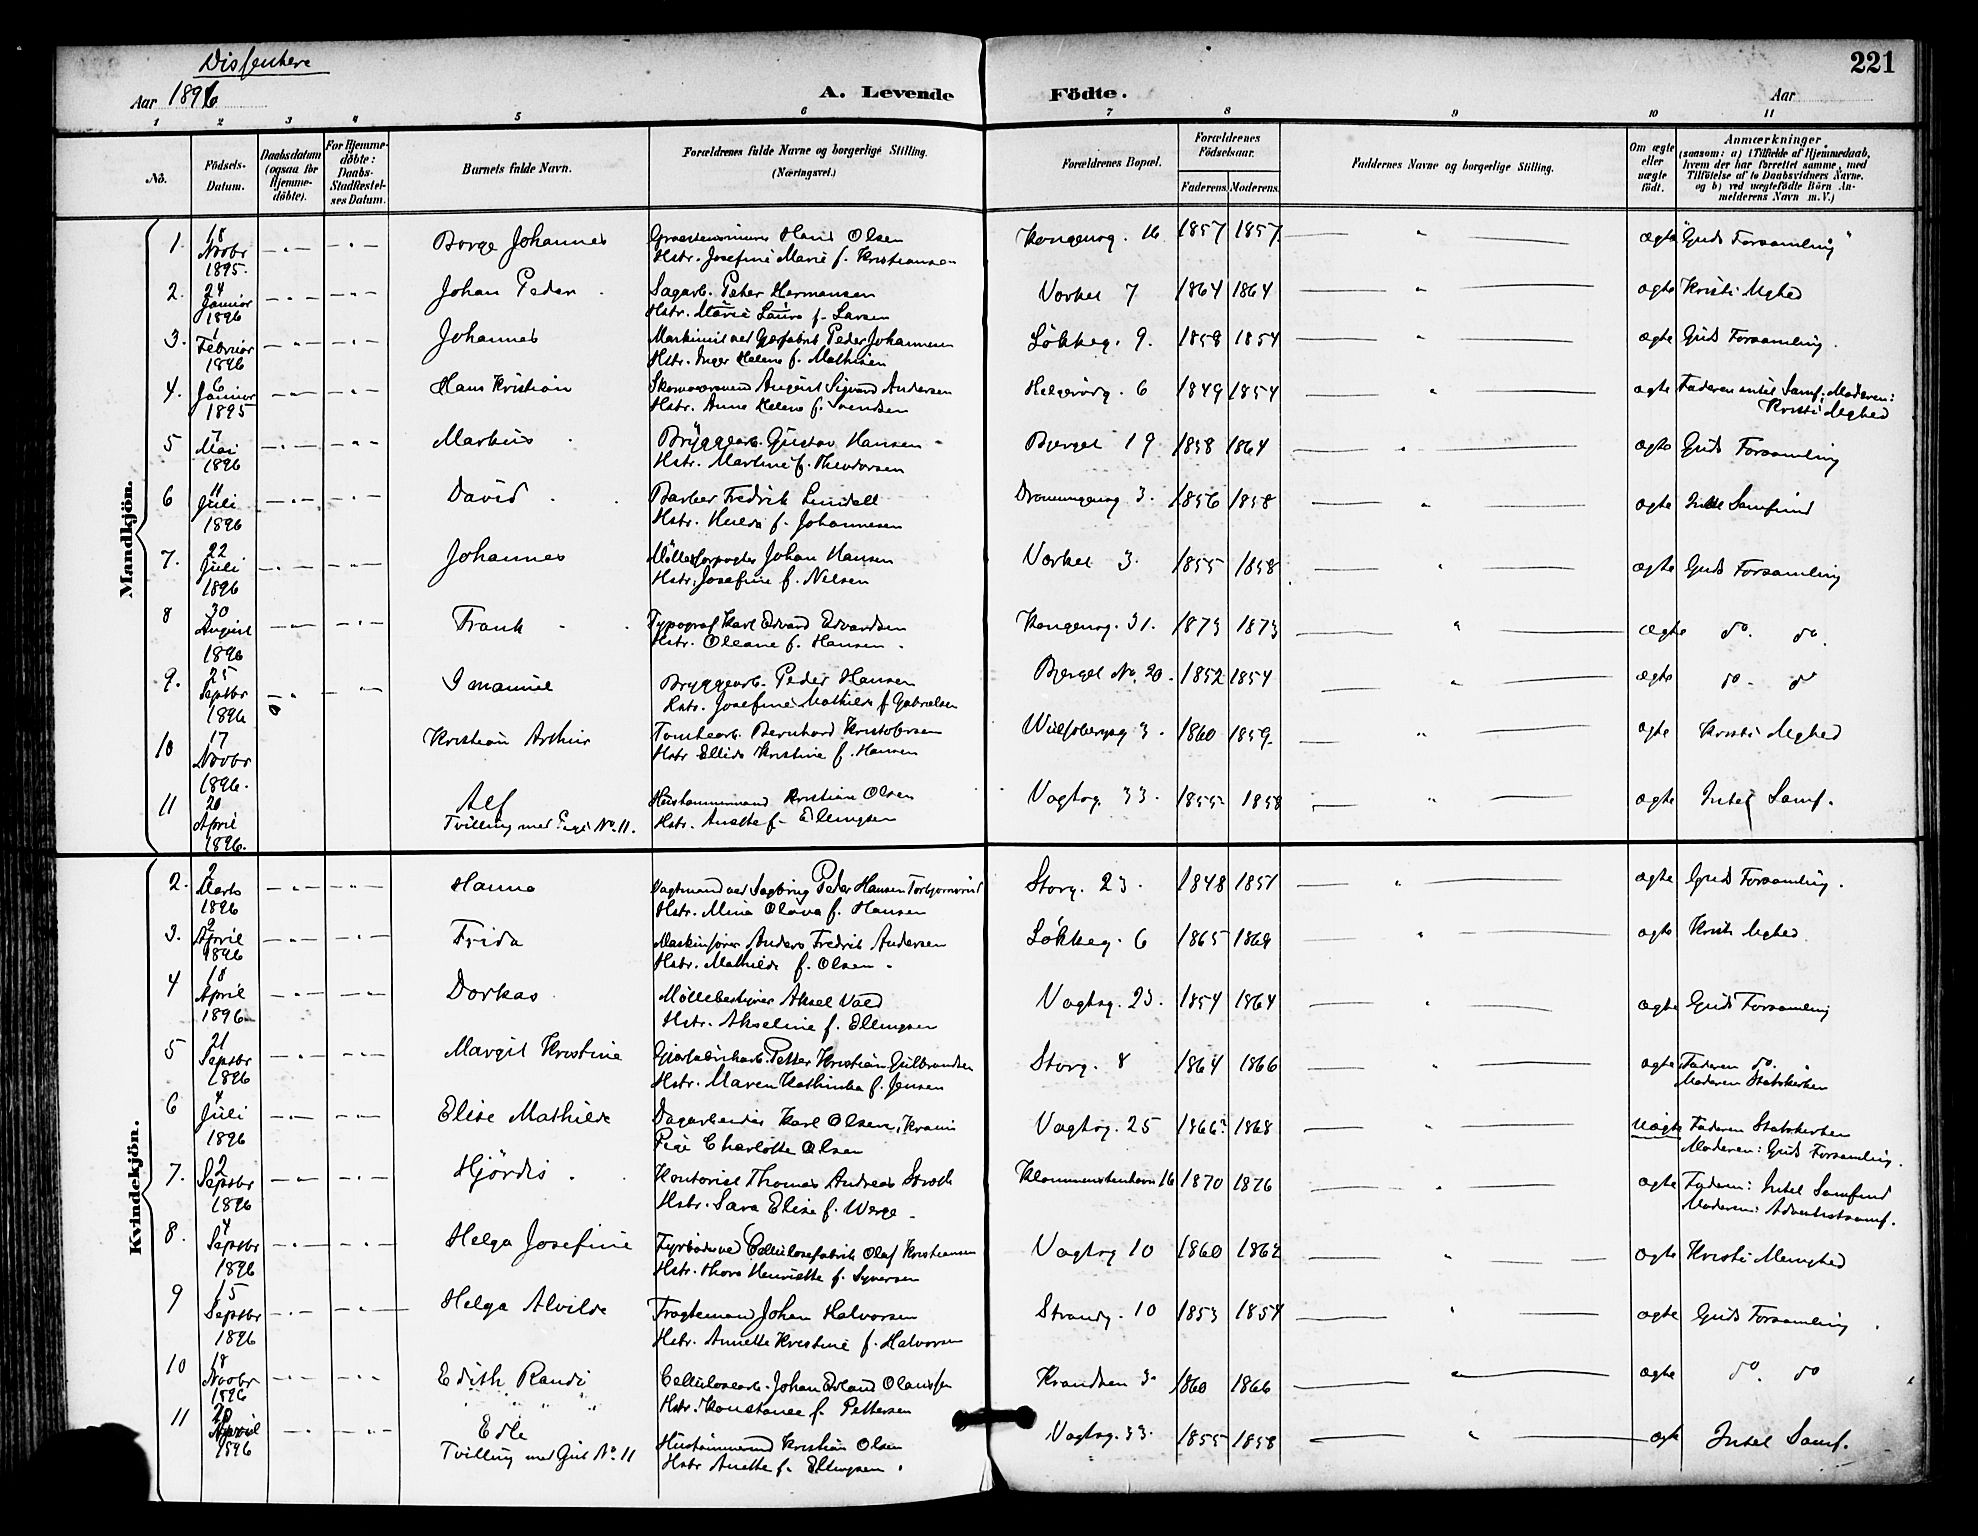 Dissentere
221
Aar 1896
A. Levende Födte.
Aar
1 2 3 4 5 6 7 8 9 10 11
No.
Födsels-Datum.
Daabsdatum (ogsaa for Hjemme-döbte).
For Hjemme-döbte: Daabs-Stadfæstel-ses Datum.
Barnets fulde Navn.
Forældrenes fulde Navne og borgerlige Stilling. (Næringsvei.)
Forældrenes Bopæl.
Forældrenes Födselsaar.
Faderens. Moderens.
Faddernes Navne og borgerlige Stilling.
Om ægte eller uægte födt.
Anmærkninger, (saasom: a) i Tilfælde af Hjemmedaab, hvem der har forrettet samme, med Tilföielse af to Daabsvidners Navne, og b) ved uægtefödte Börn An-melderens Navn m. V.)
Mandkjön.
1. 18 Novbr 1895. Borge Johannes Hans Olsen Kongensg. 16 1857 1857 ægte "Guds Forsamling"
Hstr. Josefine Marie f. Kristiansen
2. 24 Januar 1896 Johan Peder Sagarb. Peter Hermansen Værket 7 1864 1864 ægte Kristi Mghed
Hstr. Marie Laura f. Larsen
3. 1 Februar 1896 Johannes Maskinist ved Peder Johannesen Løkkeg. 9. 1858 1854 ægte Guds Forsamling.
Hstr. Inger Helene f. Mathisen
4. 6 Januar 1895 Hans Kristian August Sigvard Andersen 6 1849 1854 ægte Faderen intet Samf; Moderen:
Hstr. Anne Helene f. Svendsen Kristi Mghed
5 7 Mai 1896 Markus Bryggearb. Gustav Hansen Bjerget 19 1858 1864 ægte Guds Forsamling
Hstr. Martine f. Theodorsen
6 11 Juli 1896 David Barber Fredrik Lindell Dronningensg 3. 1856 1858 ægte Intet Samfund
Hstr. Hulda f. Johannesen
7. 22 Juli 1896 Johannes Mølleforpagter Johan Hansen Værket 3. 1855 1858 ægte Guds Forsamling
Hstr. Josefine f. Nilsen
8 30 August 1896 Frank Typograf Karl Edvard Edvardsen Kongensg. 31. 1873 1873 ægte do. do.
Hstr. Oleane f. Hansen
9. 25 Septbr 1896 Imanuel Bryggearb. Peder Hansen Bjerget No. 20. 1852 1854 ægte do. do
Hstr. Josefine Mathilde f. Gabrielsen
10 17 Novbr 1896. Kristian Arthur Tomtearb. Bernhard Kristofersen Wulfsbergsg 3. 1860 1859 ægte Kristi Mghed
Hstr Ellida Kristine f. Hansen
11 20 April 1896. Alf Hustømmermand Kristian Olsen Vagtsg. 33. 1855 1858 ægte Intet Samf.
Tvilling med Pige No. 11. Hstr. Anette f. Ellingsen
Kvindekjön.
2. 2 Marts 1896 Hanna Vagtmand ved Sagbrug Peder Hansen Storg. 23. 1848 1851 ægte Guds Forsamling.
Hstr. Mina Olava f. Hansen
3. 2 April 1896 Frida Maskinfører Anders Fredrik Andersen Løkkeg. 6 1865 1869 ægte Kristi Mghed
Hstr. Mathilde f. Olsen.
4 18 April 1896 Dorkas Møllebestyrer Aksel Vold Vagtsg. 23. 1854 1864 ægte Guds Forsamling
Hstr. Akseline f. Ellingsen
5 21 Septbr 1896 Margit Kristine Petter Kristian Gulbrandsen Storg. 8 1864 1866 ægte Faderen do.
Hstr. Maren Kathinka f. Jensen Moderen Statskirken
6 4 Juli 1896 Elise Mathilde Dagarbeider Karl Olsen, Pige Charlotte Olsen Vagtsg. 25 1866? 1868 uægte Faderen Statskirken
Moderen: Guds Forsamling.
7. 2 Septbr 1896 Hjördis Kontorist Thomas Andreas 16 1870 1876 ægte Faderen: Intet Samfund
Hstr. Sara Elise f. Werge Moderen: Adventistsamf.
8. 4 Septbr 1896 Helga Josefine Fyrbøder ved Cellulosefabrik Olaf Kristiansen Vagtsg 10 1860 1862 ægte Kristi Menighed
Hstr. Thora Henriette f. Syversen
9 15 Septbr 1896 Helga Alvilde Fragtemand Johan Halvorsen Strandg. 10 1853 1854 ægte Guds Forsamling
Hstr. Annette Kristine f. Halvorsen
10 18 Novbr 1896 Edith Randi Cellulosearb. Johan Edvard 3. 1860 1866 ægte do. do
Hstr. Konstance f. Pettersen
11 20 April 1896 Edle Hustømmermand Kristian Olsen Vagtsg. 33. 1855 1858 ægte Intet Samf.
Tvilling med Gut No. 11 Hstr Anette f. Ellingsen